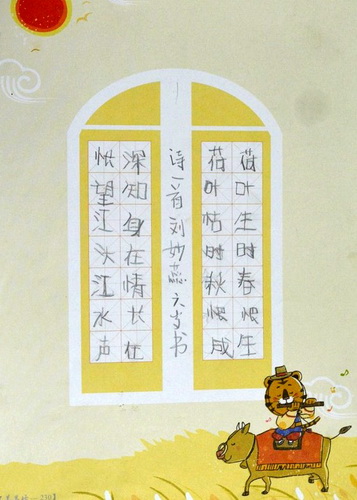 荷叶生时春恨生
荷叶枯时秋恨成
诗一首刘妙蕊六岁书
深知身在情长在
怅望江头江水声